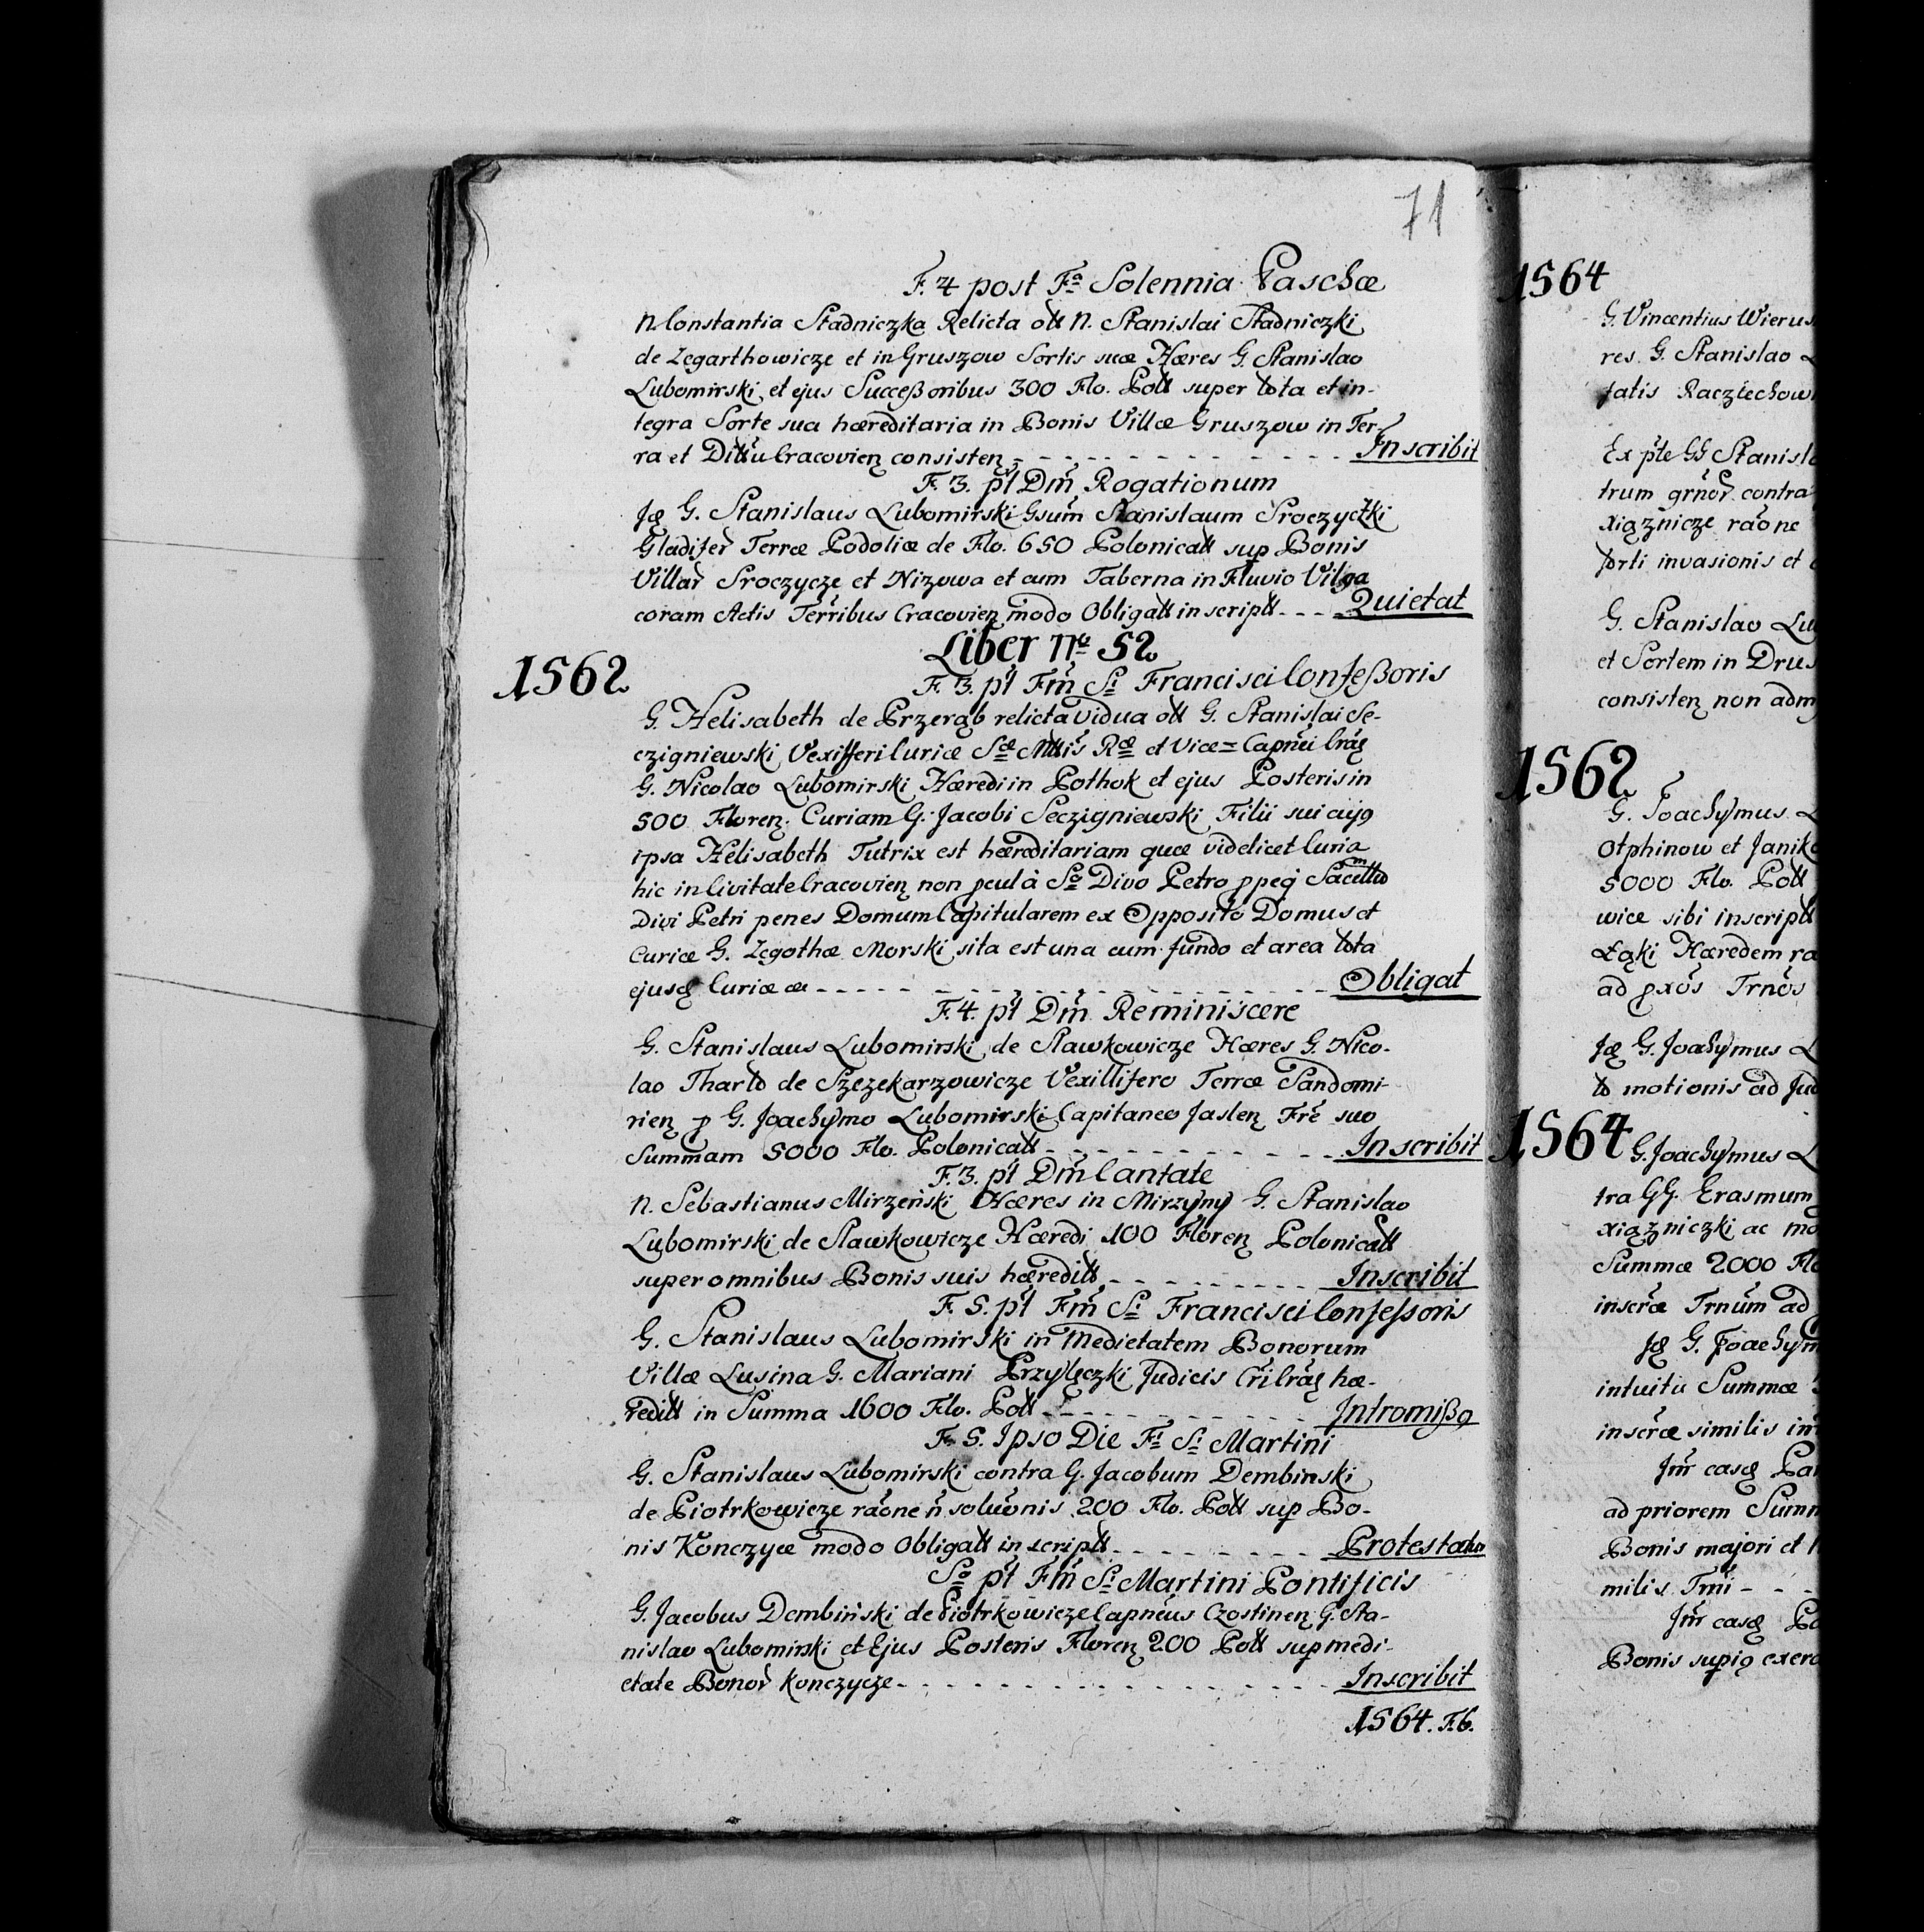 71
F. 4 post F. Solennia Paschæ
N. Constantia Stadniczka Relicta oll N. Stanislai Stadniczki
de Zegarthowicze et in Gruszow Sortis suæ Hæres G. Stanislao
Lubomirski et ejus Succeßoribus 300 Flo. Poll super tota et in-
tegra Sorte sua hæreditaria in Bonis Villæ Gruszow in Ter-
ra et Dittu Cracovien consisten - - - Inscribit
F. 3. pt Dm Rogationum
Jq G. Stanislaus Lubomirski Gsum Stanislaum Sroczyczki
Gladifer Terræ Podoliæ de Flo. 650 Polonicall sup Bonis
Villar Sroczycze et Nizowa et cum Taberna in Fluvio Vilga
coram Actis Terribus Cracovien modo Obligatt inscriptt - - - Quietat
Liber No 52
1562
F. 3. pt Fm Si Francisci Confeßoris
G. Helisabeth de Przerąb relicta vidua oll G. Stanislai Se-
czigniewski Vexifferi Curiæ Sæ Mttis Ræ et Vice= Capnei Crac
G. Nicolao Lubomirski Hæredi in Pothok et ejus Posteris in
500 Floren. Curiam G. Jacobi Seczigniewski Filii sui cujq
ipsa Helisabeth Tutrix est hæreditariam quæ videlicet Curia
hic in Civitate Cracovien non pcul à So Divo Petro ppeq Sacello
Divi Petri penes Domum Capitularem ex Opposito Domus et
Curiæ G. Zegothæ Morski sita est una cum fundo et area tota
ejusq Curiæ - - - Obligat
F. 4. pt Dm Reminiscere
G. Stanislaus Lubomirski de Slawkowicze Hæres G. Nico-
lao Tharlo de Szczekarzowicze Vexillifero Terræ Sandomi-
rien p G. Joachymo Lubomirski Capitaneo Jaslen Fre suo
Summam 5000 Flo. Polonicall - - - Inscribit
F. 3. pt Dm Cantate
N. Sebastianus Mirzeński Hæres in Mirzyny G. Stanislao
Lubomirski de Slawkowicze Hæredi 100 Floren Polonicall
super omnibus Bonis suis hæreditt - - - Inscribit
F. 5. pt Fm Si Francisci Confessoris
G. Stanislaus Lubomirski in Medietatem Bonorum
Villæ Lusina G. Mariani Przyłęczki Judicis Cri Crac hæ-
reditt in Summa 1600 Flo. Poll - - - Intromißq
F. 5. Ipso Die Fi Si Martini
G. Stanislaus Lubomirski contra G. Jacobum Dembinski
de Piotrkowicze raone n soluonis 200 Flo. Poll sup Bo-
nis Konczyce modo Obligatt inscriptt - - - Protestatur
So pt Fm Si Martini Pontificis
G. Jacobus Dembiński de Piotrkowicze Capneus Czostinen G. Sta-
nislao Lubomirski et Ejus Posteris Floren 200 Poll sup medi-
etate Bonor Konczycze - - - Inscribit
1564. F. 6.
1564
G. Vincentius
res G. Stanislao
tatis
Ex pte GG
trum grnor contra
xiąznicze raone
forti invasionis et
G. Stanislao
et Sortem in
consisten non
1562
G. Joachymus
Otphinow et
5000 Flo. Poll
wice sibi
Łąki Hæredem
ad pxos Trnos
Jq G. Joachymus
to motionis ad
1564
G. Joachymus
tra GG. Erasmum
xiązniczki ac
Summæ 2000
inscræ Trnum ad
Jq G.
intuitu Summæ
inscræ similis
Jm casq
ad priorem
Bonis majori et
milis Trni - - -
Jm casq
Bonis